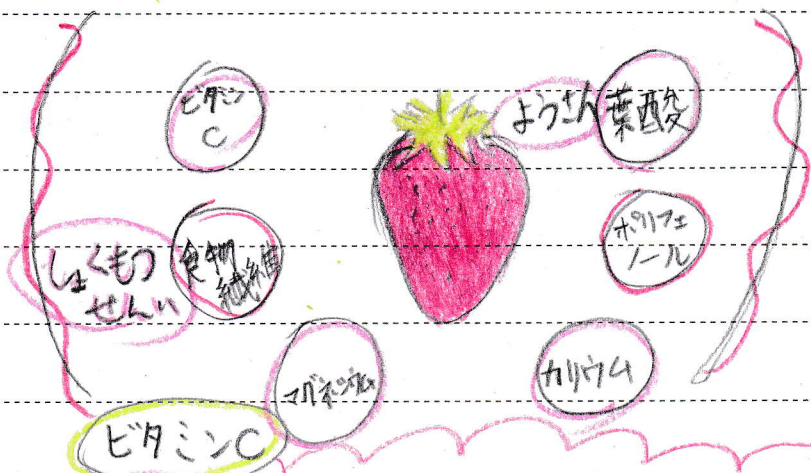 ビタミン
C
ようさん
葉酸
しょくもつ
せんい
食物
繊維
ポリフェ
ノール
マグネシウム
カリウム
ビタミンC